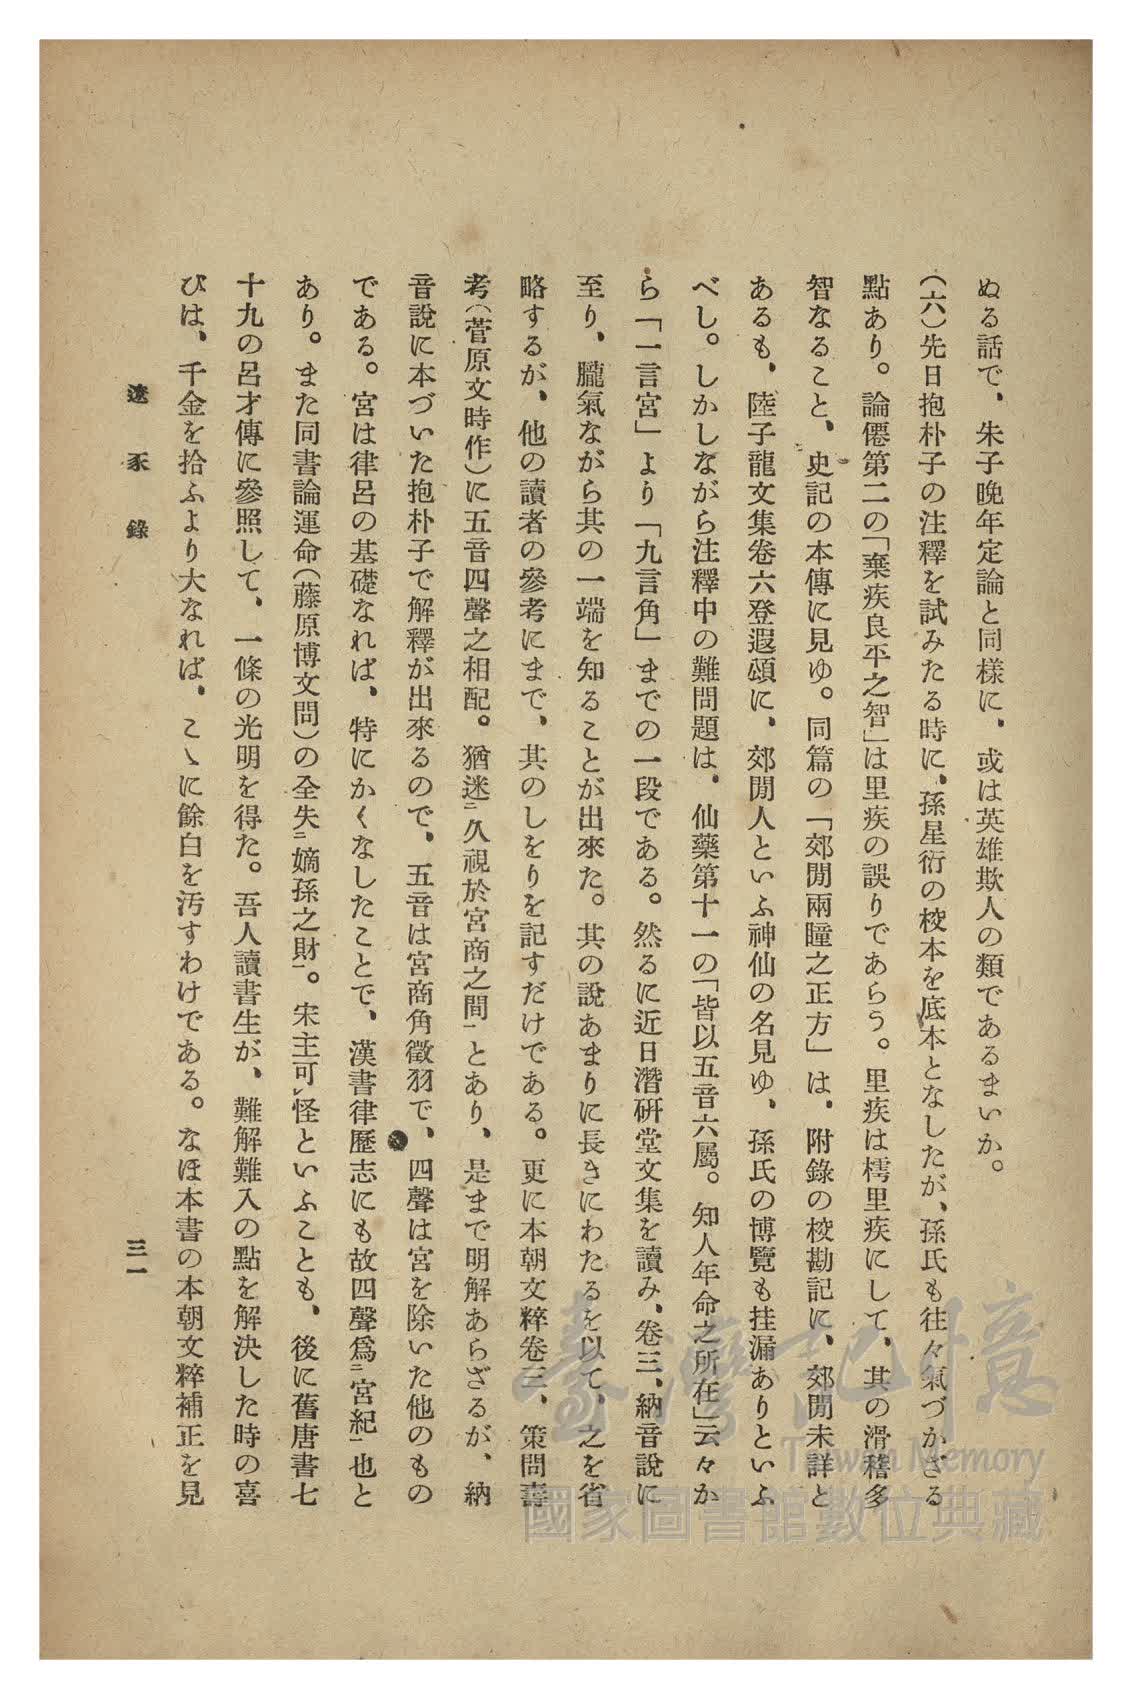 ぬる話で、朱子晩年定論と同樣に、或は英雄欺人の類であるまいか。
(六)先日抱朴子の注釋を試みたる時に、孫星衍の校本を底本となしたが、孫氏も往々氣づかざる
點あり。論僊第二の「棄疾良平之智」は里疾の誤りであらう。里疾は樗里疾にして、其の滑稽多
智なること、史記の本傳に見ゆ。同篇の「郊閒兩瞳之正方」は、附錄の校勘記に、郊閒未詳と
あるも、陸子龍文集卷六登遐頌に、郊閒人といふ神仙の名見ゆ、孫氏の博覽も挂漏ありといふ
べし。しかしながら注釋中の難問題は、仙藥第十一の「皆以五音六屬。知人年命之所在」云々か
ら「一言宮」より「九言角」までの一段である。然るに近日潛硏堂文集を讀み、卷三、納音說に
至り、朧氣ながら其の一端を知ることが出來た。其の說あまりに長きにわたるを以て、之を省
略するが、他の讀者の參考にまで、其のしをりを記すだけである。更に本朝文粹卷三、策問壽
考(菅原文時作)に五音四聲之相配。猶迷㆓久視於宮商之間㆒とあり、是まで明解あらざるが、納
音說に本づいた抱朴子で解釋が出來るので、五音は宮商角徵羽で、四聲は宮を除いた他のもの
である。宮は律呂の基礎なれば、特にかくなしたことで、漢書律歷志にも故四聲爲㆓宮紀㆒也と
あり。また同書論運命(藤原博文問)の全失㆓嫡孫之財㆒。宋主可㆑怪といふことも、後に舊唐書七
十九の呂才傳に參照して、一條の光明を得た。吾人讀書生が、難解難入の點を解決した時の喜
びは、千金を拾ふより大なれば、こゝに餘白を汚すわけである。なほ本書の本朝文粹補正を見
遼豕錄
三一
臺灣記憶
Taiwan Memory
國家圖書館數位典藏